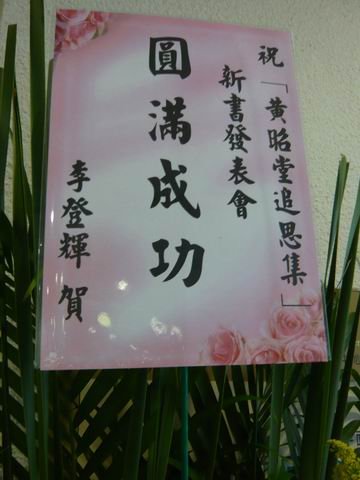 祝「黃昭堂追思集」
新書發表會
圓滿成功
李登輝 賀